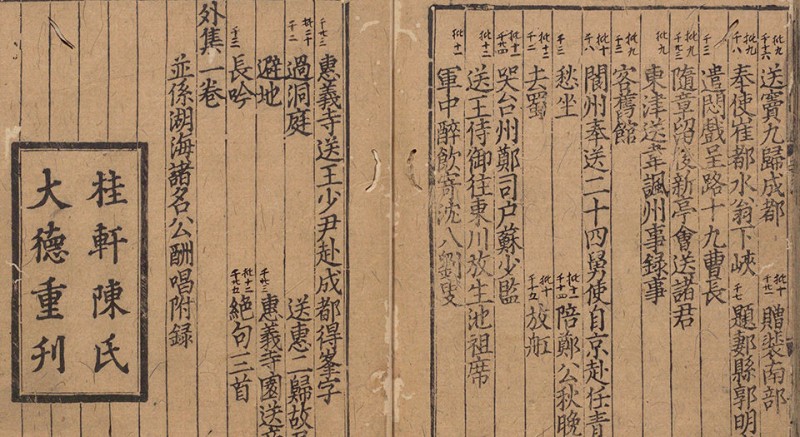 批九 送竇九歸成都 批十 贈裴南部
批九 千八 奉使崔都水翁下峽 千七 題郪縣郭明
千三 遣悶戲呈路十九曹長
批九 隨章留後新亭會送諸君
批九 東津送韋諷州事録事
批九 客舊館
批十 千八 閬州奉送二十四舅使自京赴任青
千三 愁坐 批十 千十四 陪鄭公秋晚
批十二 千二 去蜀 批十 千十五 放船
批十一 哭台州鄭司户蘇少監
批十二 送王侍御往東川放生池祖席
批十一 軍中醉飲寄沈八劉叟
惠義寺送王少尹赴成都得峯字
千二 過洞庭 送惠二歸故
避地 惠義寺園送
千三 長吟 批十二 絶句三首
外集一卷
並係湖海諸名公酬唱附録
桂軒陳氏
大德重刊